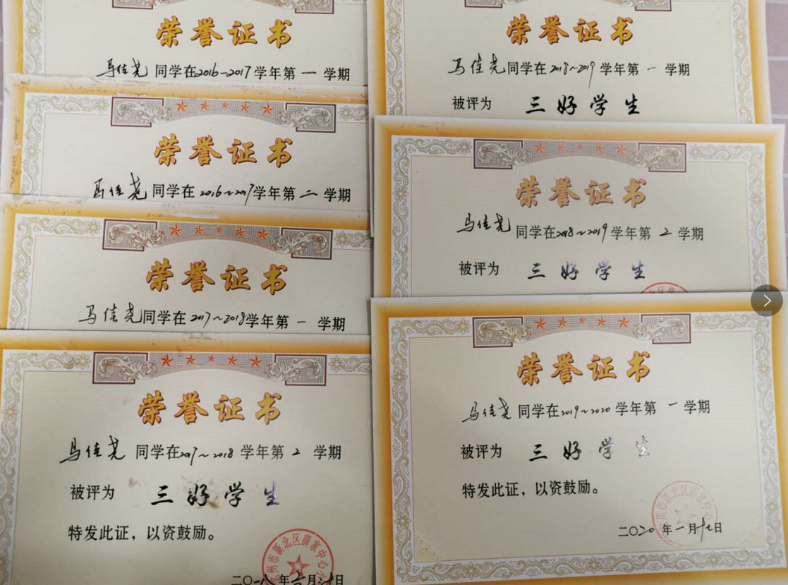 荣誉证书
马佳尧 同学在2016-2017学年第一学期
荣誉证书
马佳尧 同学在2016~2017学年第二学期
荣誉证书
马佳尧同学在2017~2018学年第一学期
荣誉证书
马佳尧 同学在2017~2018学年第2学期
被评为 三好学生
特发此证，以资鼓励。
荣誉证书
马佳尧同学在2018~2019学年第一学期
被评为 三好学生
荣誉证书
马佳尧同学在2018~2019学年第2学期
被评为 三好学生
荣誉证书
马佳尧同学在2019~2020学年第一学期
被评为 三好学生
特发此证，以资鼓励。
二〇20年一月十七日